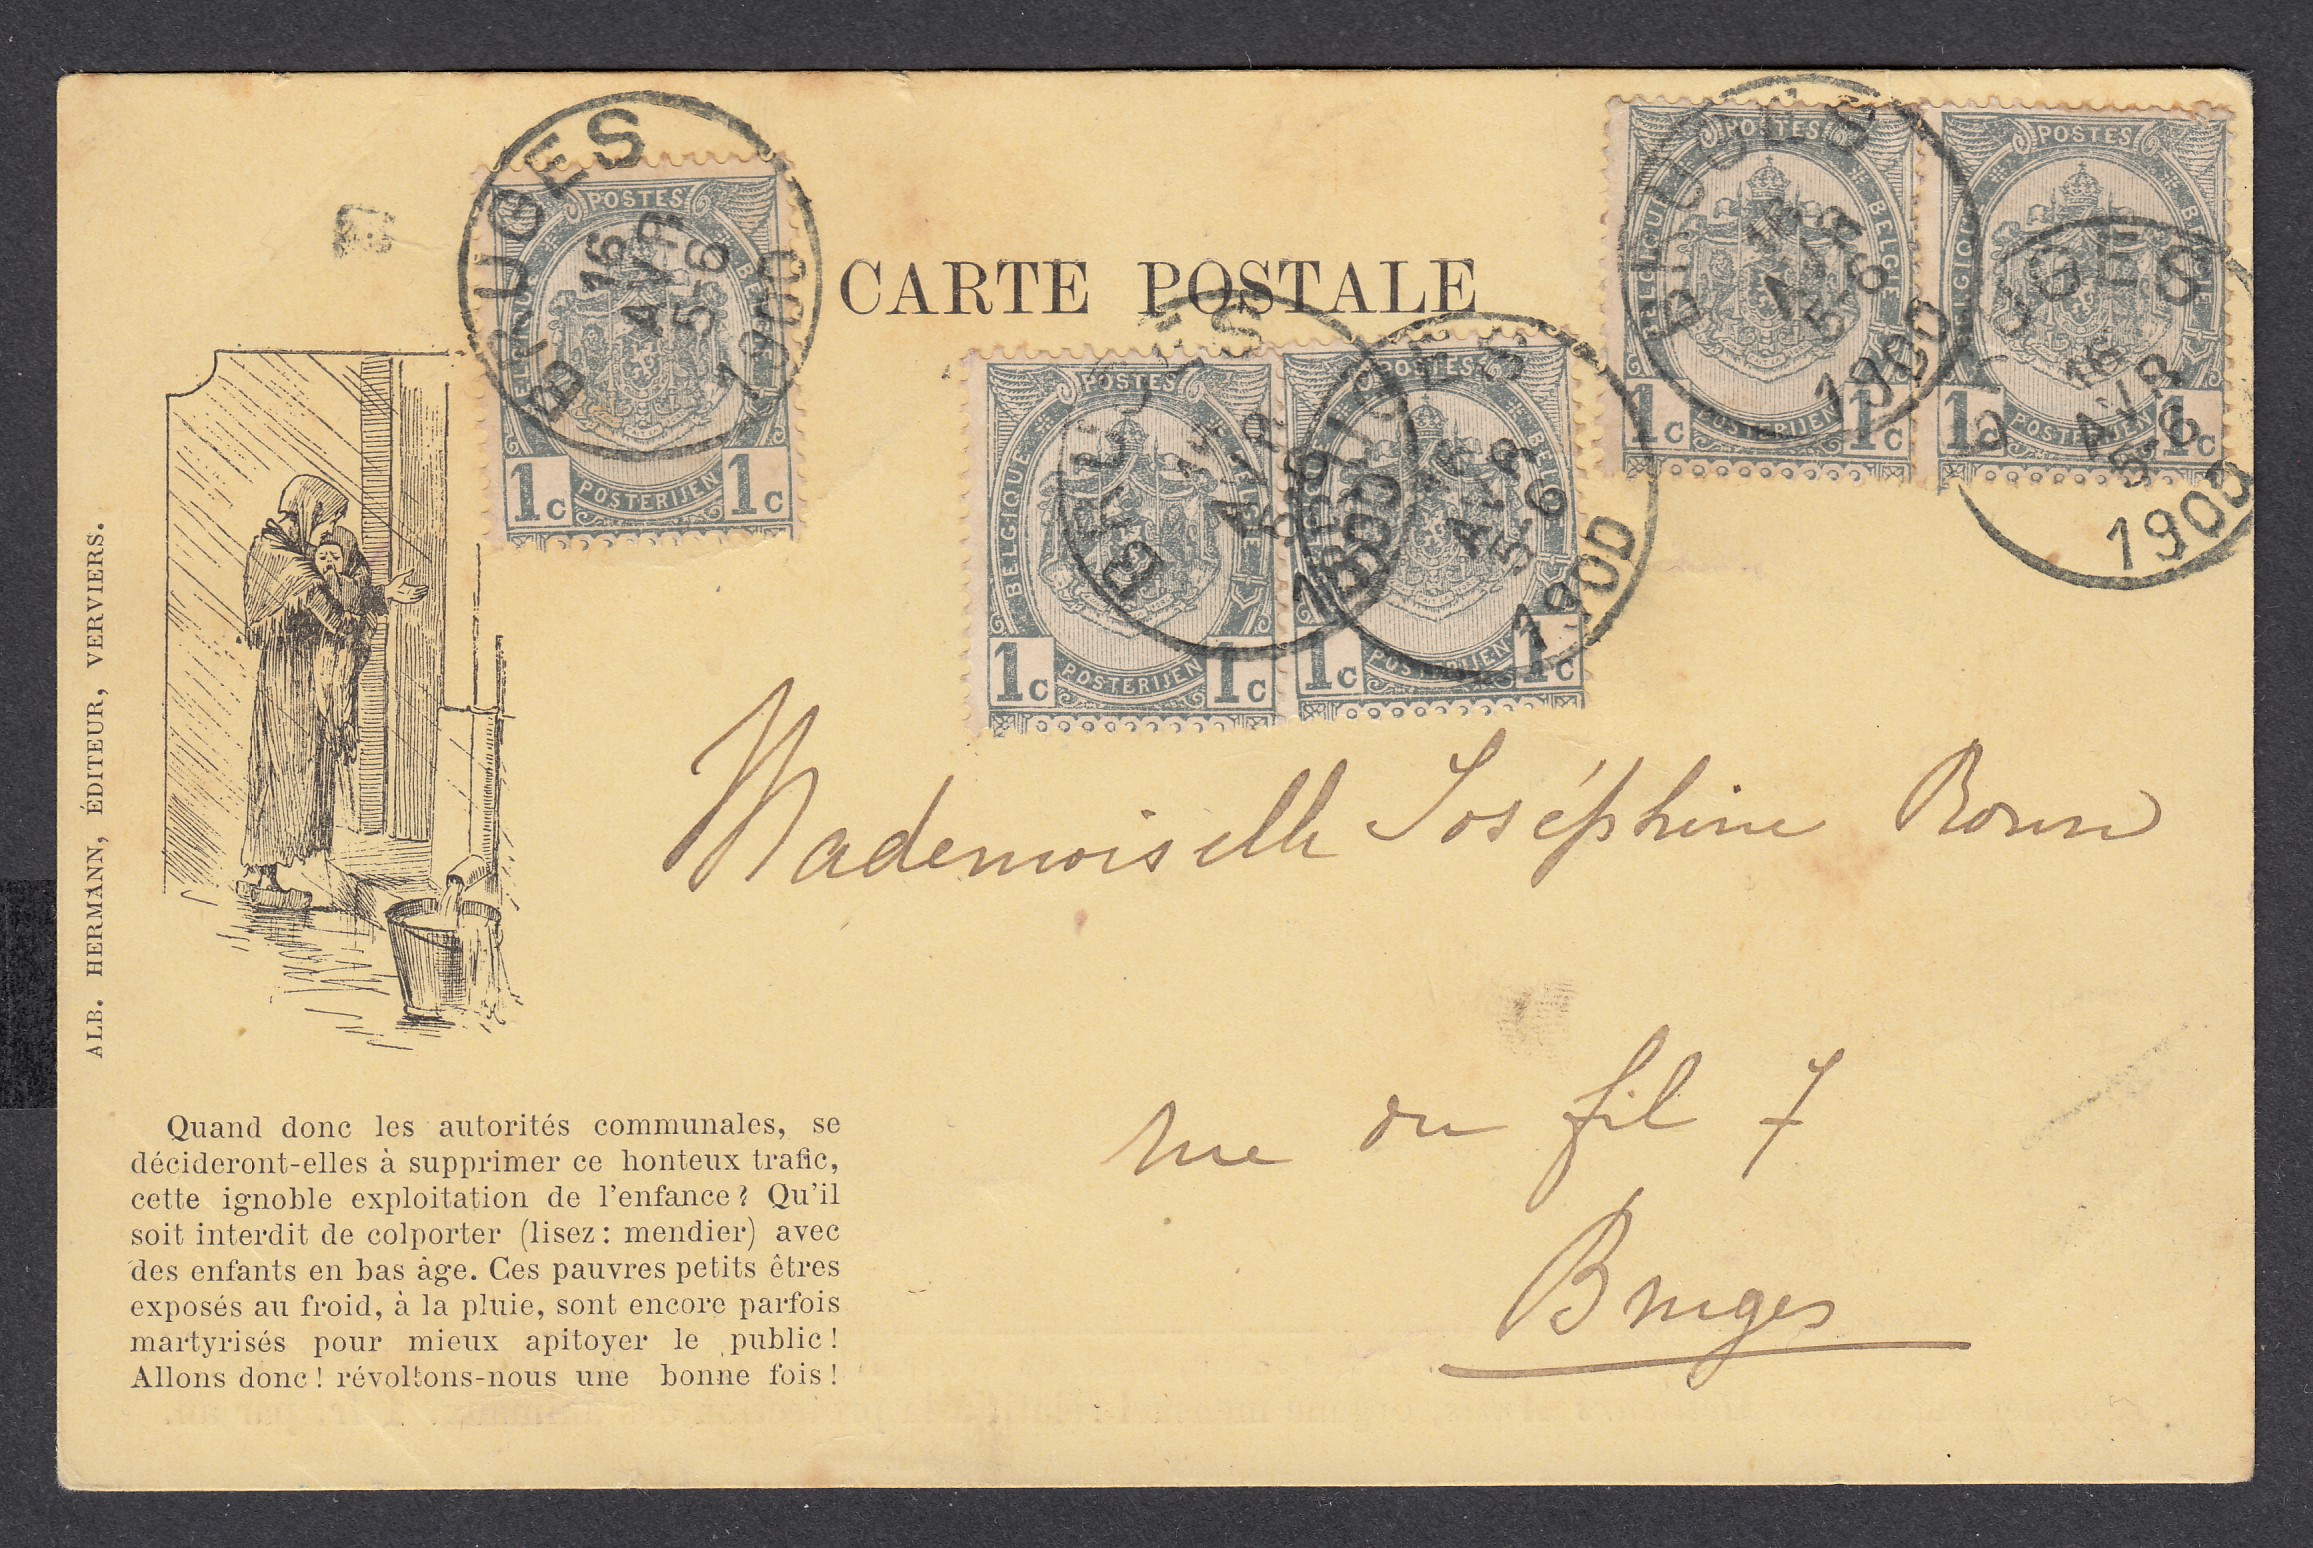 BRUGES
16
AVR
5-6
1900
POSTES
BELGIQUE
BELGIE
1c POSTERIJEN 1c
CARTE POSTALE
BRUGES
16
AVR
5-6
1900
POSTES
BELGIQUE
BELGIE
1c POSTERIJEN 1c
BRUGES
16
AVR
5-6
1900
POSTES
BELGIQUE
BELGIE
1c POSTERIJEN 1c
BRUGES
16
AVR
5-6
1900
POSTES
BELGIQUE
BELGIE
1c POSTERIJEN 1c
BRUGES
16
AVR
5-6
1900
POSTES
BELGIQUE
BELGIE
1c POSTERIJEN 1c
ALB. HERMANN, ÉDITEUR, VERVIERS.
Mademoiselle Joséphine
rue du fil 7
Bruges
Quand donc les autorités communales, se
décideront-elles à supprimer ce honteux trafic,
cette ignoble exploitation de l'enfance? Qu'il
soit interdit de colporter (lisez: mendier) avec
des enfants en bas âge. Ces pauvres petits êtres
exposés au froid, à la pluie, sont encore parfois
martyrisés pour mieux apitoyer le public!
Allons donc! révoltons-nous une bonne fois!